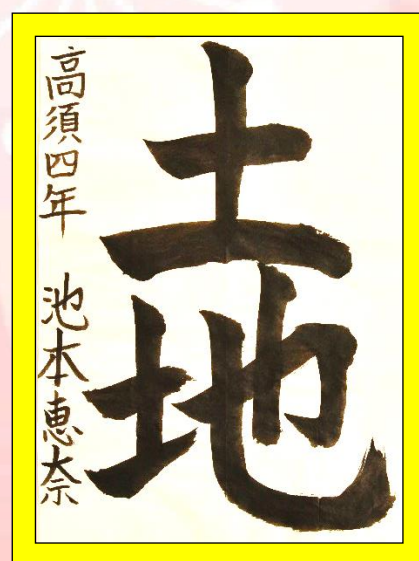 土地
高須四年 池本恵奈